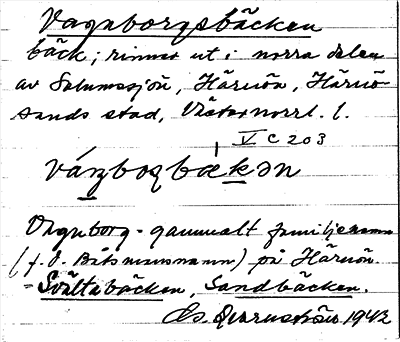 Vagnborgsbäcken
bäck; rinner ut i norra delen
av Salumssjön, Härnön, Härnö
sands stad, Västernorrl. l.
V C 203
Vagnborg - gammalt familjenamn
(f. d. Båtsmansnamn) på Härnön
- Svältabäcken, Sandbäcken.
1942